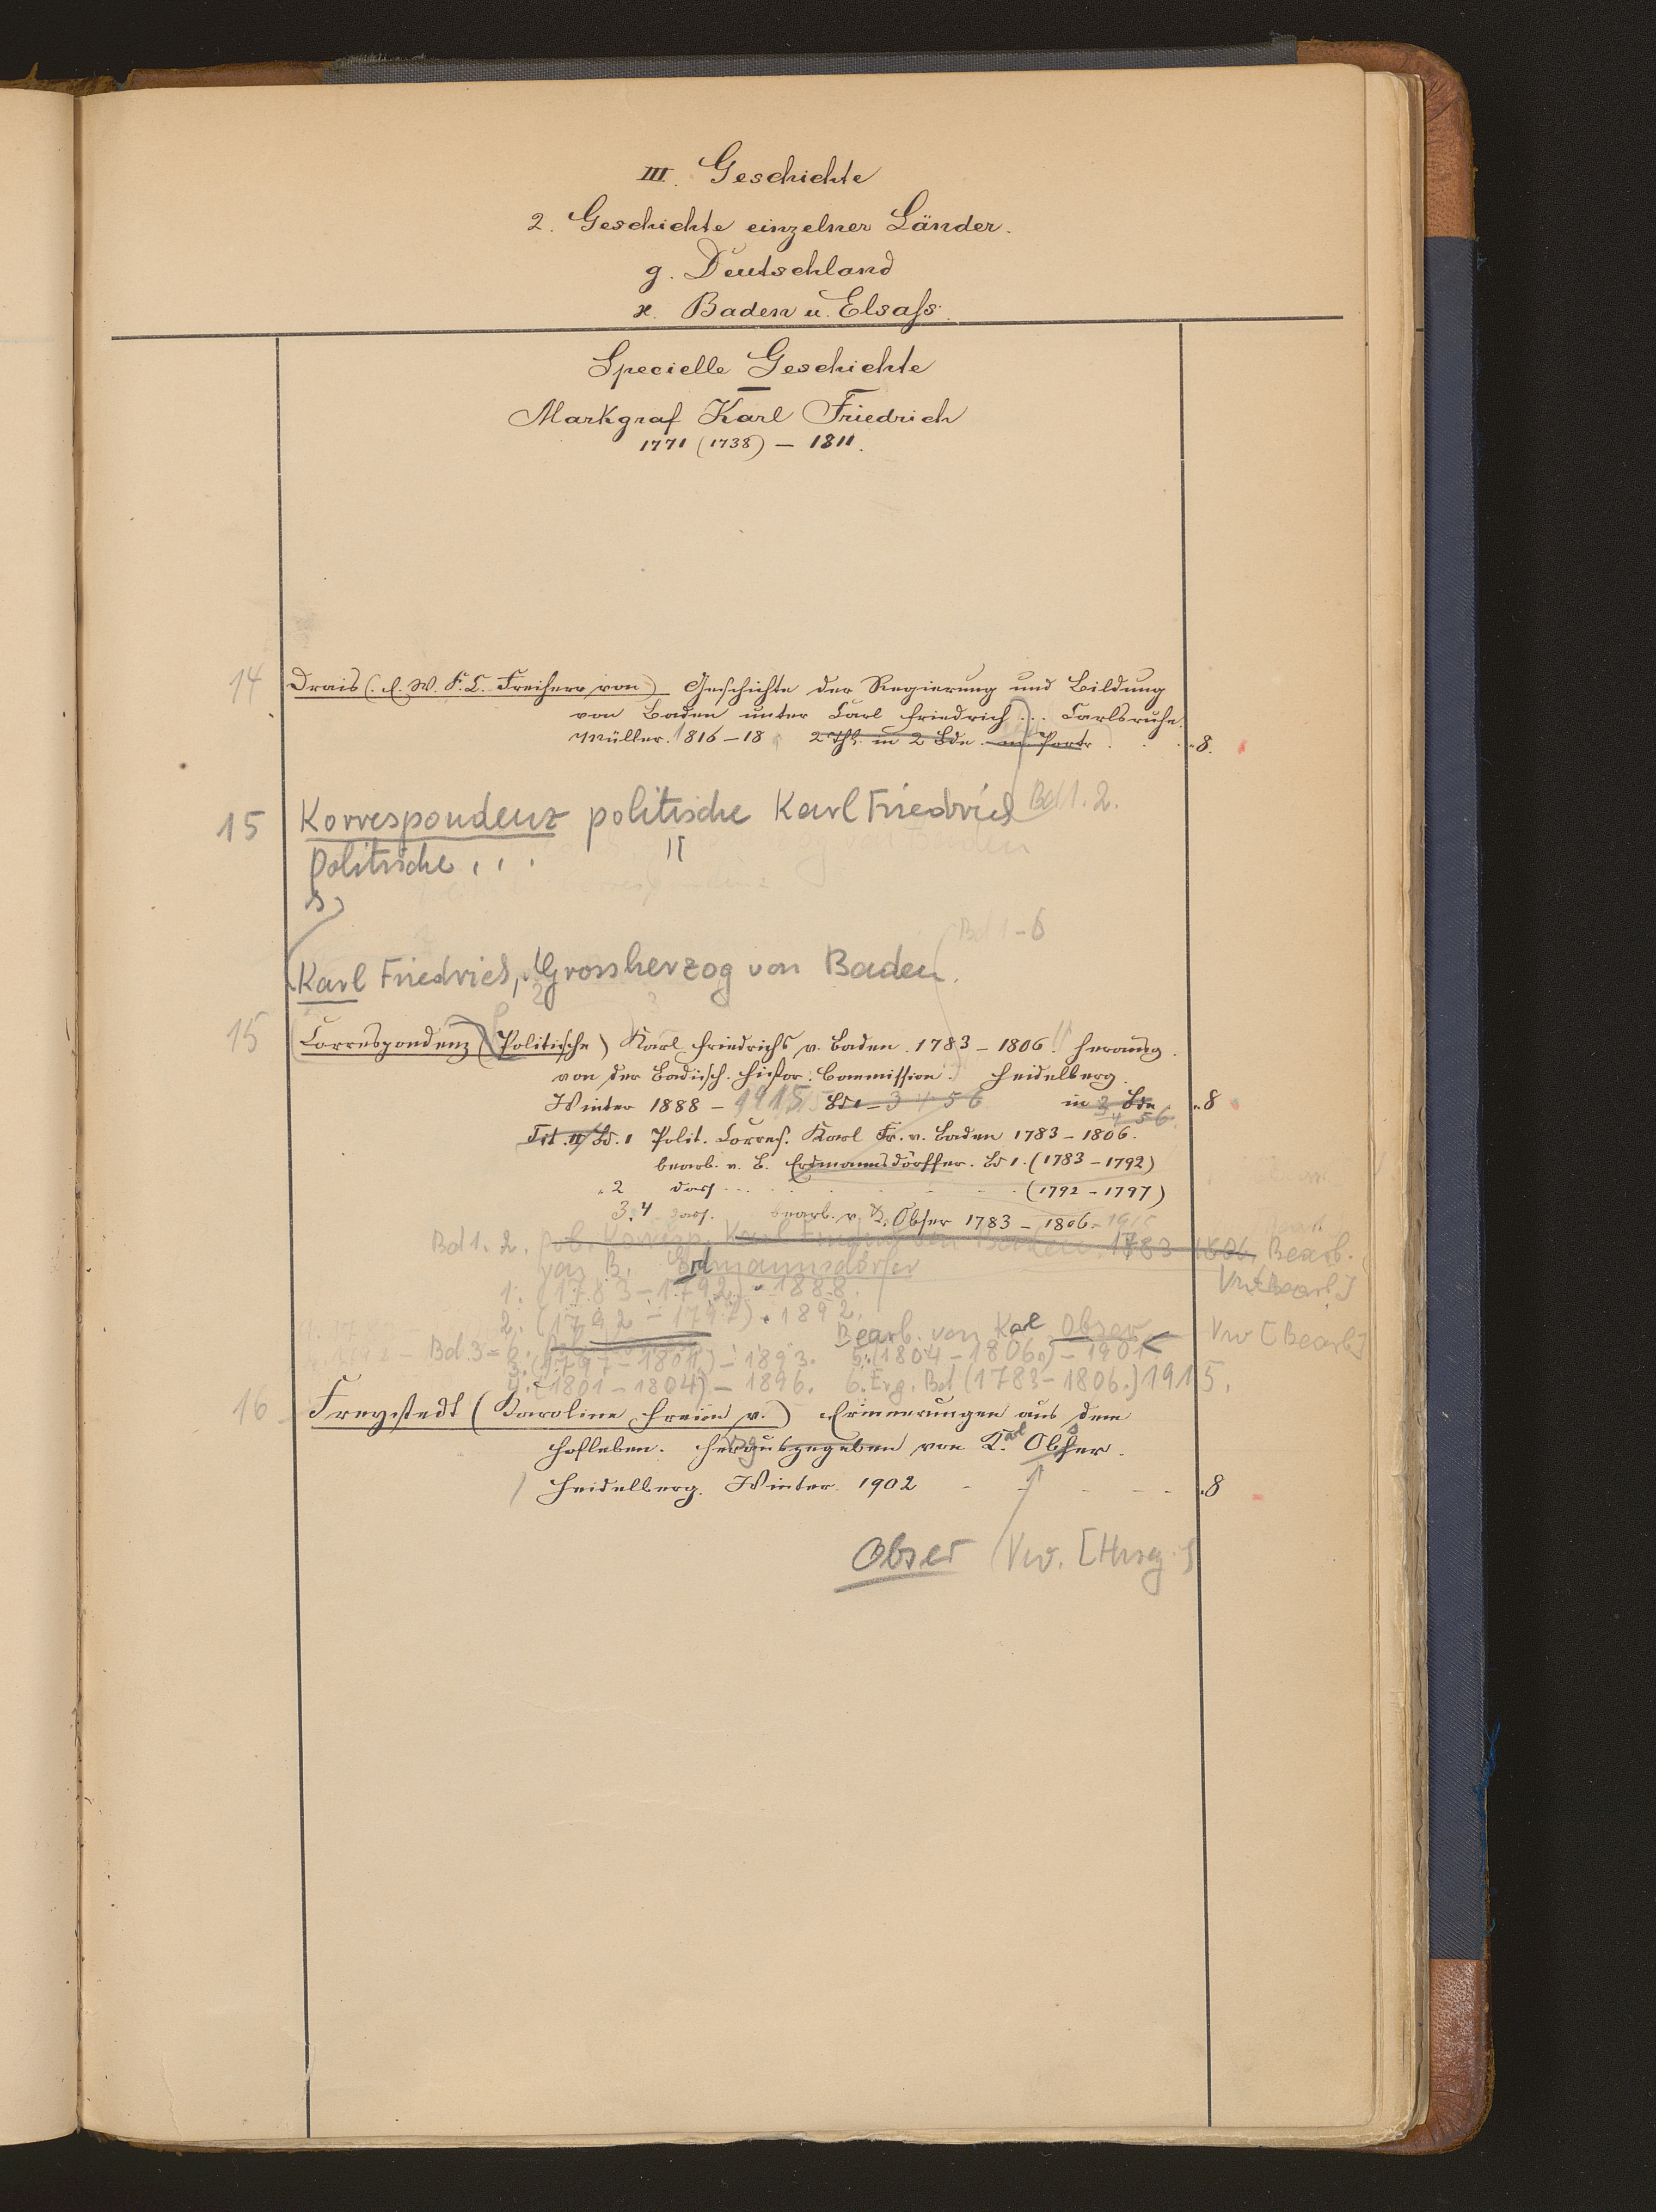 III. Geschichte
2. Geschichte einzelner Länder.
g. Deutschland
ϰ. Baden u. Elsaß.
Specielle Geschichte
Markgraf Karl Friedrich
1771 (1738) – 1811.
14 Drais (C. W. F. L. Freiherr von) Geschichte der Regierung und Bildung
von Baden unter Carl Friedrich ... Carlsruhe.
Müller. 1816–18. 2 Thl. in 2 Bde. m. Portr. . . . 8.
15 Korrespondenz politische Karl Friedrich Bd 1. 2.
Politische ...
Bd 1–6
Karl Friedrich, Grossherzog von Baden.
15 Correspondenz (Politische) Karl Friedrichs v. Baden. 1783–1806. herausg.
von der Badisch. histor. Commission. Heidelberg.
Winter 1888 – 1915 Bd 1–3 4 5 6 in 3 Bde „8
4 5 6.
Tit. Bd. 1 Polit. Corresp. Karl Fr. v. Baden 1783–1806.
bearb. v. B. Erdmannsdörffer. Bd 1. (1783–1792)
„ 2 dass ... (1792–1797)
3. 4 dass. bearb. v. K. Obser 1783–1806. 1915
Bd 1. 2. pol. Korresp. Karl Friedrich von Baden. 1783 1806. Bearb.
von B. Erdmannsdörfer
Vw [Bearb.]
1. (1783–1792) – 1888.
2. (1792–1797). 1892.
Bearb. von Karl Obser Vw [Bearb]
Bd. 3–6.
3. (1797–1801.) – 1893. 5. (1804–1806.) – 1901
4. (1801–1804) – 1896. 6. Erg. Bd (1783–1806.) 1915.
16 Freystedt (Karoline Freiin v.) Erinnerungen aus dem
Hofleben. Herausgegeben von Karl Obser.
Heidelberg. Winter. 1902 . . . 8
Obser Vw. [Hrsg.]